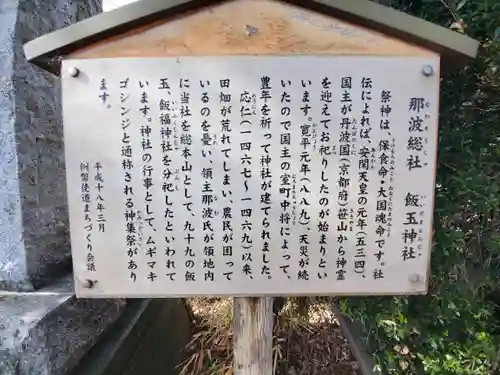 那波総社 飯玉神社
祭神は、保食命・大国魂命です。社
伝によれば、安閑天皇の元年(五三四)
国主が丹波国(京都府)笹山から神霊
を迎えてお祀りしたのが始まりとい
います。寛平元年(八八九)天災が続
いたので国主の室町中将によって、
豊年を祈って神社が建てられました。
応仁(一四六七~一四六九)以来、
田畑が荒れてしまい、農民が困って
いるのを憂い、領主那波氏が領地内
に当社を総本山として、九十九の飯
玉、飯福神社を分祀したといわれて
います。神社の行事として、ムギマキ
ゴシンジと通称される神集祭があり
ます。
平成十八年三月
例幣使道まちづくり会議